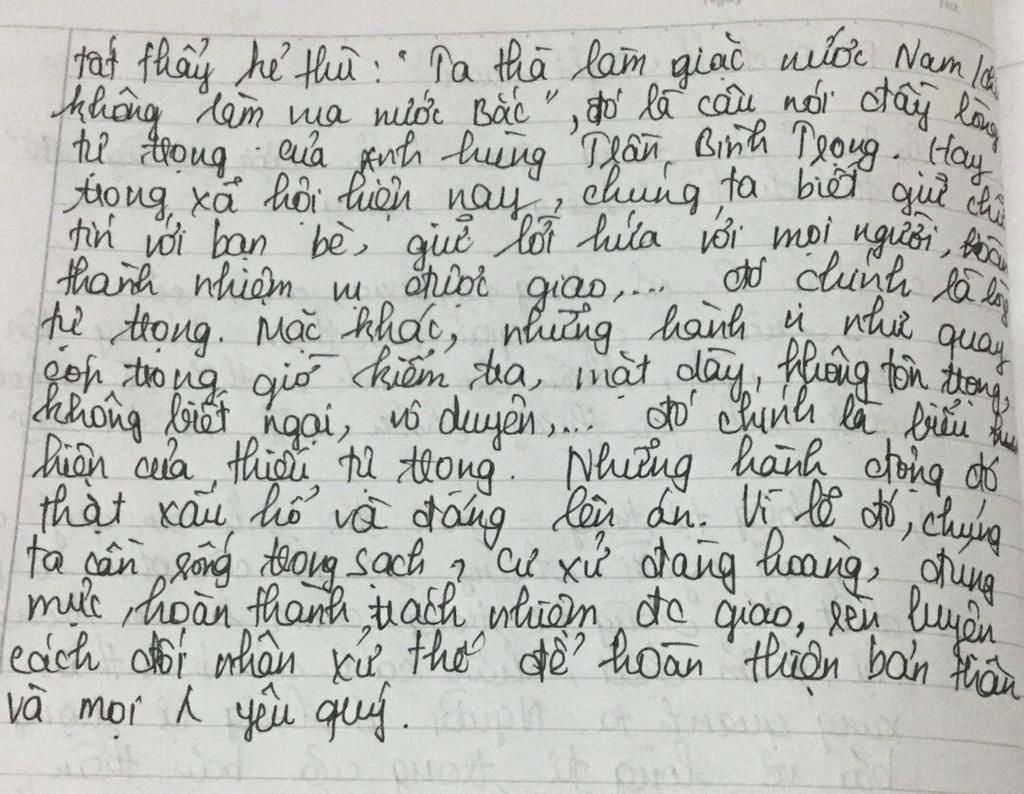 tất thảy kẻ thù: "Ta thà làm giặc nước Nam
không làm ma nước Bắc", đó là câu nói đầy lòng
tự trọng của anh hùng Trần Bình Trọng. Hay
trong xã hội hiện nay, chúng ta biết giữ chữ
tín với bạn bè, giữ lời hứa với mọi người, hoàn
thành nhiệm vụ được giao,... đó chính là lòng
tự trọng. Mặc khác, những hành vi như quay
cóp trong giờ kiểm tra, mặt dày, không tôn trọng,
không biết ngại, vô duyên,... đó chính là biểu
hiện của thiếu tự trọng. Những hành động đó
thật xấu hổ và đáng lên án. Vì lẽ đó, chúng
ta cần sống trong sạch, cư xử đàng hoàng, đúng
mực, hoàn thành trách nhiệm đc giao, rèn luyện
cách đối nhân xử thế để hoàn thiện bản thân
và mọi ng yêu quý.